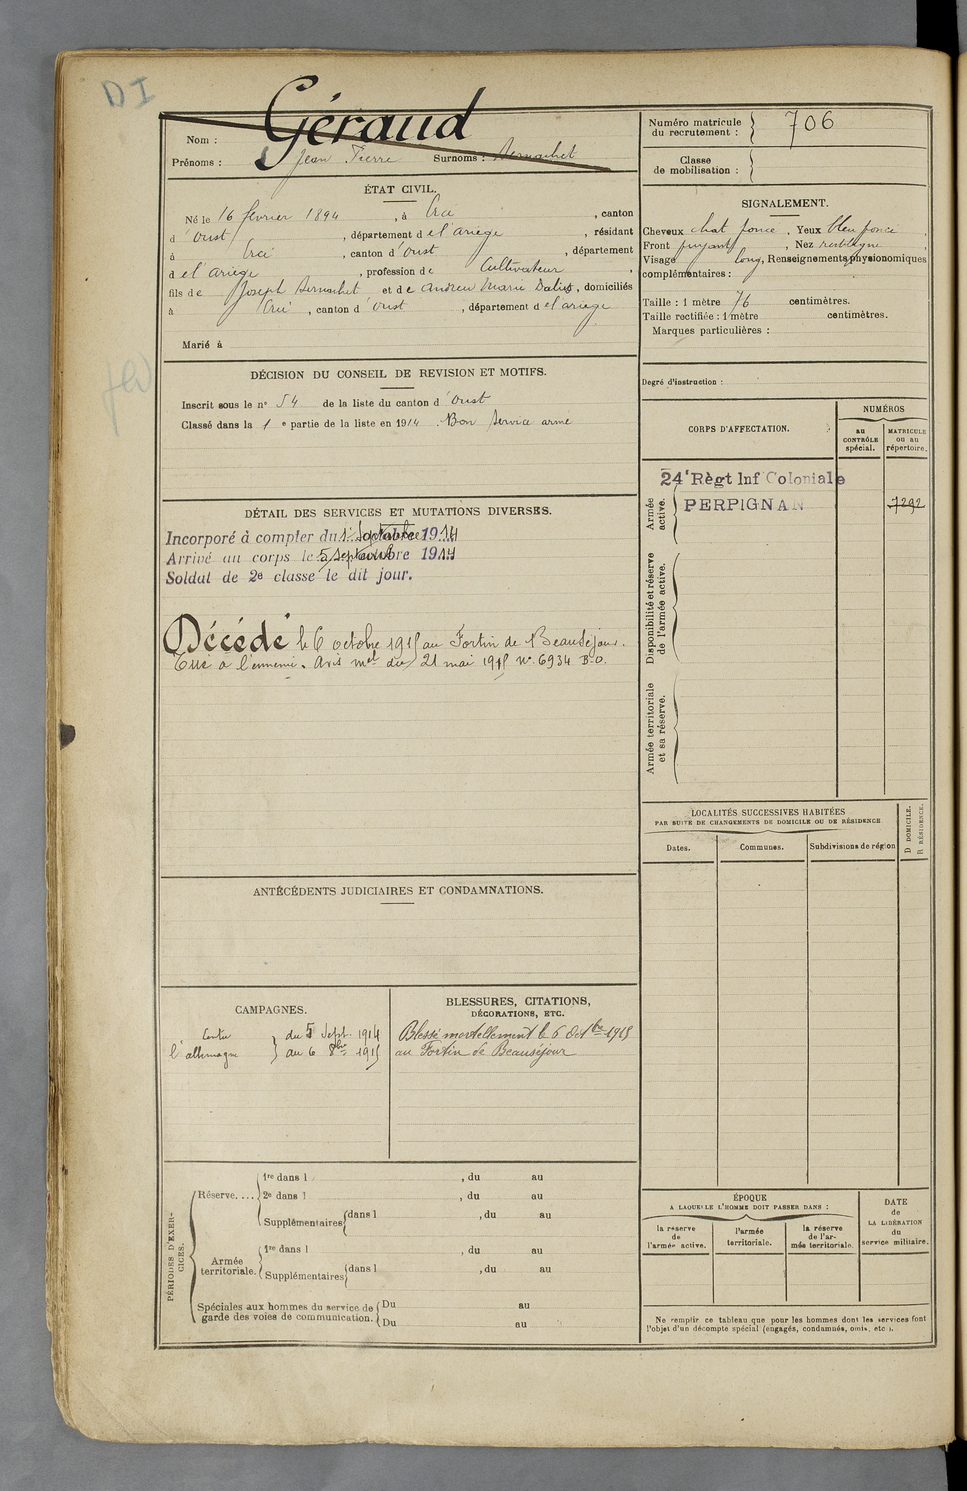 DI
Géraud
Nom :
Prénoms : Jean Pierre Surnoms : Bernachet
ÉTAT CIVIL.
Né le 16 février 1894, à Ercé, canton
d'Oust, département de l'ariège, résidant
à Ercé, canton d'Oust, département
de l'ariège, profession de Cultivateur,
fils de Joseph Bernachet et de Andreu Marie, domiciliés
à Ercé, canton d'Oust, département de l'ariège
Marié à
DÉCISION DU CONSEIL DE REVISION ET MOTIFS.
Inscrit sous le n° 54 de la liste du canton d'Oust
Classé dans la 1 e partie de la liste en 1914. Bon Service armé
DÉTAIL DES SERVICES ET MUTATIONS DIVERSES.
Incorporé à compter du 1 Septembre 1914
Arrivé au corps le 5 Septembre 1914
Soldat de 2e classe le dit jour.
Décédé le 6 octobre 1915 au Fortin de Beauséjour.
Tué à l'ennemi. Avis mel du 21 mai 1915 N° 6934 B-D.
ANTÉCÉDENTS JUDICIAIRES ET CONDAMNATIONS.
CAMPAGNES.
Contre
l'allemagne
du 5 Sept. 1914
au 6 8bre 1915
BLESSURES, CITATIONS,
DÉCORATIONS, ETC.
Blessé mortellement le 6 Octbre 1915
au Fortin de Beauséjour
PÉRIODES D'EXERCICES.
Réserve....
1re dans l , du au
2e dans l , du au
Supplémentaires dans l , du au
Armée
territoriale.
1re dans l , du au
Supplémentaires dans l , du au
Spéciales aux hommes du service de
garde des voies de communication.
Du au
Du au
Numéro matricule
du recrutement : 706
Classe
de mobilisation :
SIGNALEMENT.
Cheveux chat foncé, Yeux bleu foncé,
Front fuyant, Nez rectiligne,
Visage long, Renseignements physionomiques
complémentaires :
Taille : 1 mètre 76 centimètres.
Taille rectifiée : 1 mètre centimètres.
Marques particulières :
Degré d'instruction :
CORPS D'AFFECTATION.
NUMÉROS
au
CONTRÔLE
spécial.
MATRICULE
ou au
répertoire.
Armée
active.
24e Règt Inf Coloniale
PERPIGNAN 7292
Disponibilité et réserve
de l'armée active.
Armée territoriale
et sa réserve.
LOCALITÉS SUCCESSIVES HABITÉES
PAR SUITE DE CHANGEMENTS DE DOMICILE OU DE RÉSIDENCE
D DOMICILE.
R RÉSIDENCE.
Dates. Communes. Subdivisions de région
ÉPOQUE
A LAQUELLE L'HOMME DOIT PASSER DANS :
la réserve
de
l'armée active.
l'armée
territoriale.
la réserve
de l'ar-
mée territoriale.
DATE
de
LA LIBÉRATION
du
service militaire.
Ne remplir ce tableau que pour les hommes dont les services font
l'objet d'un décompte spécial (engagés, condamnés, omis, etc.).